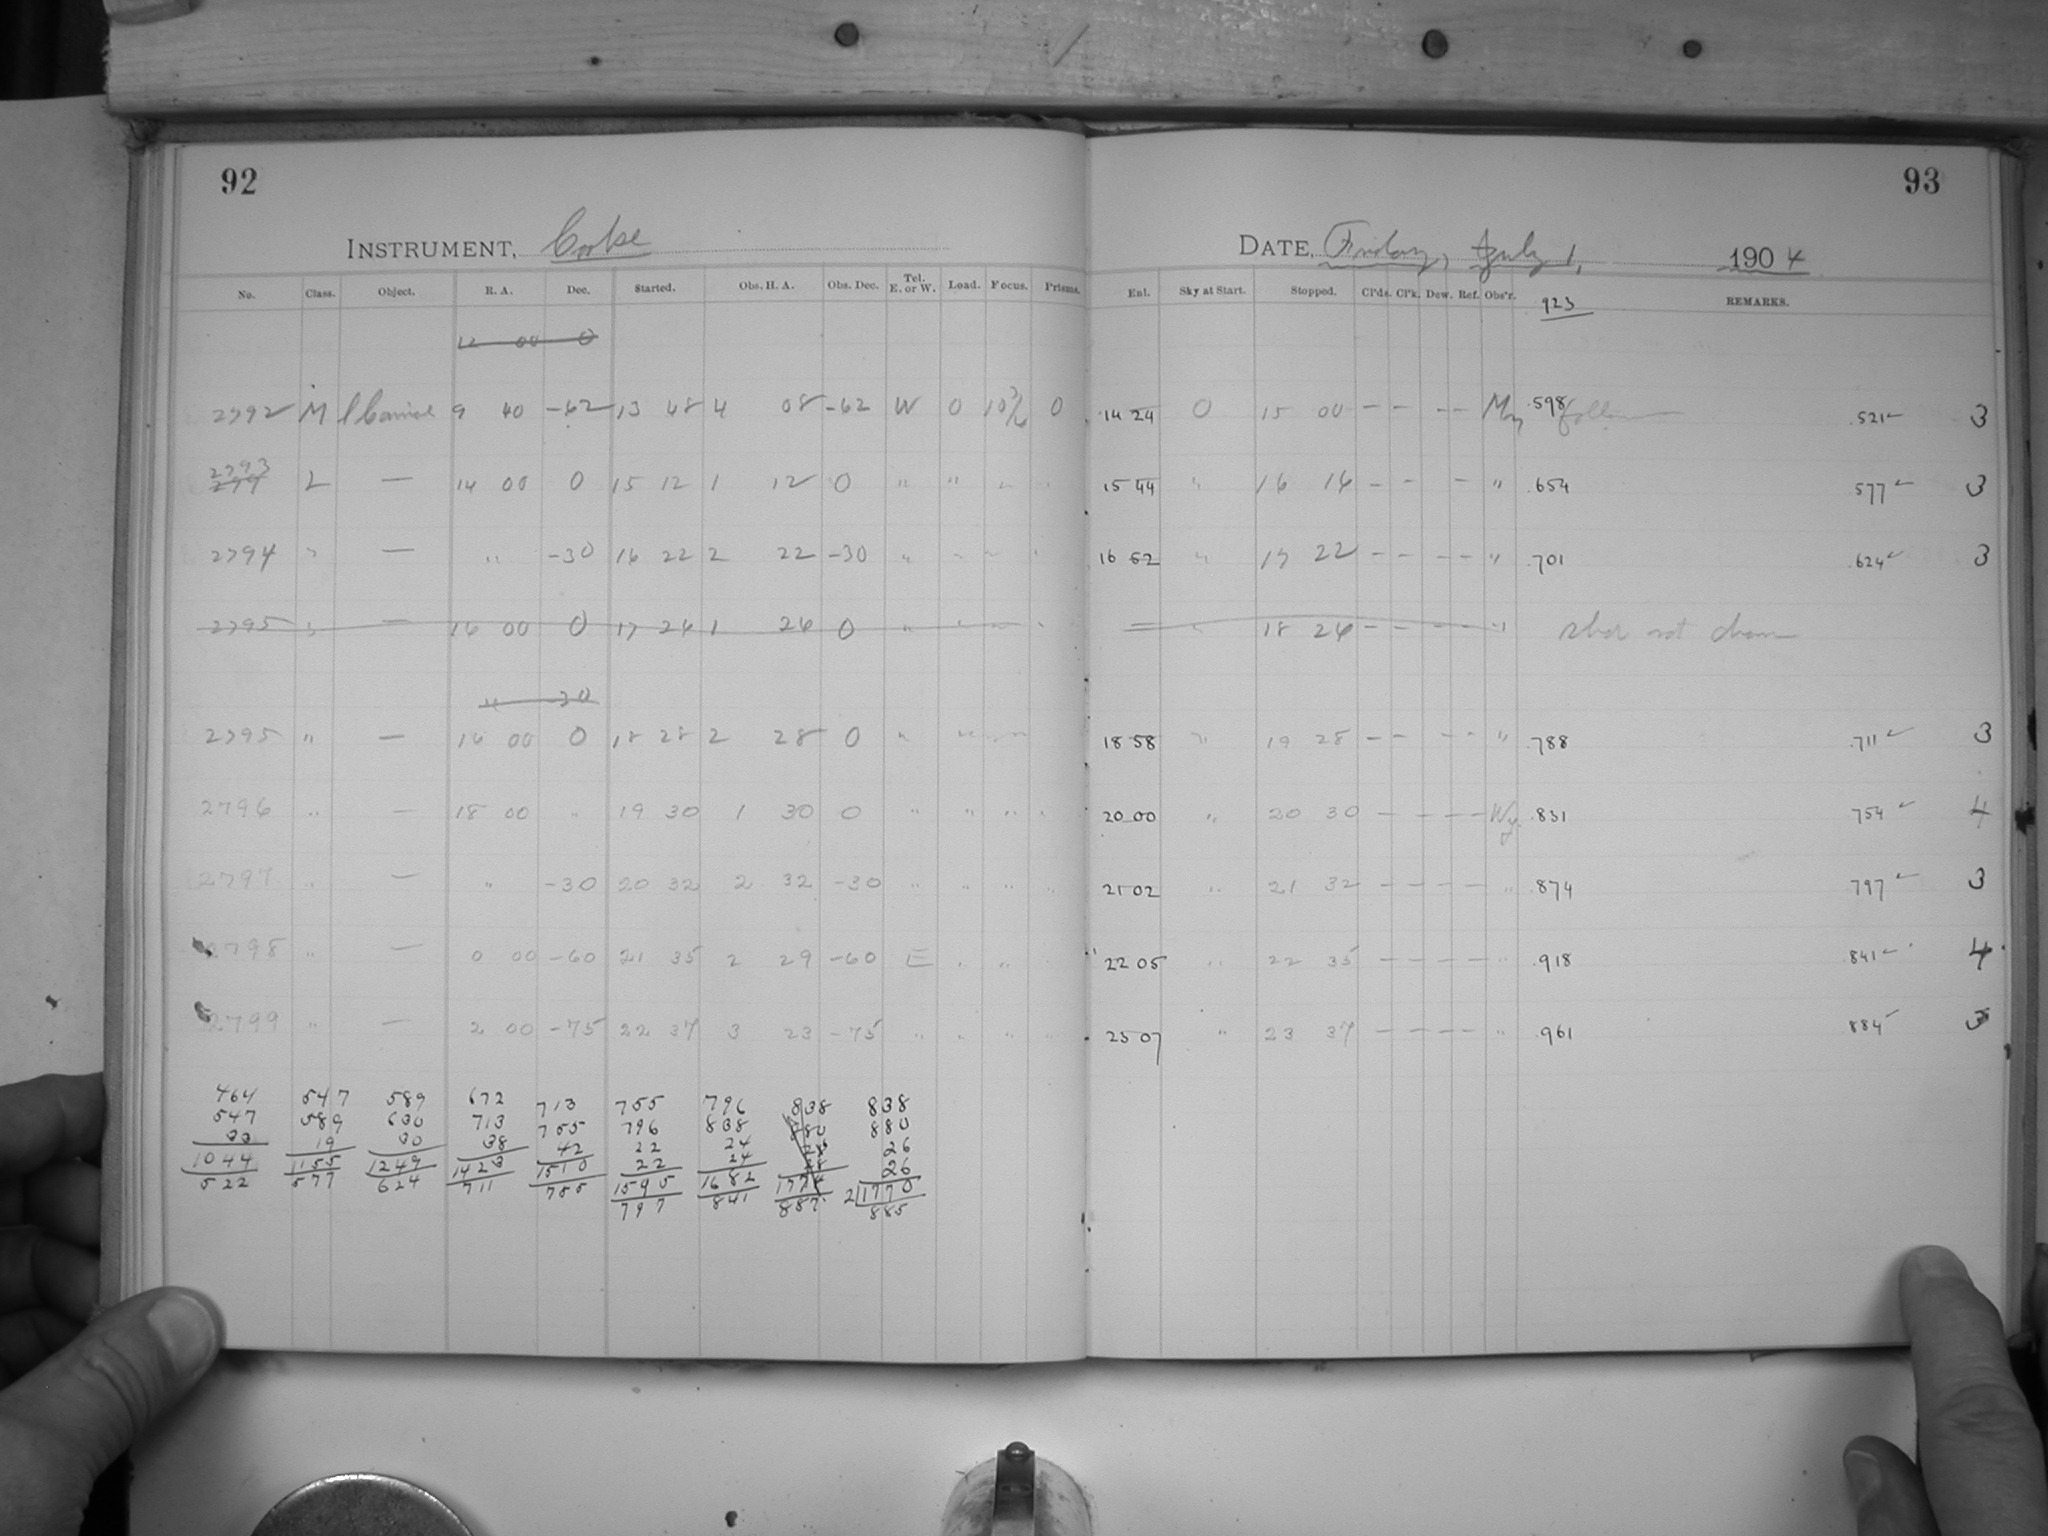 92
INSTRUMENT, Cooke
No. Class. Object. R. A. Dec. Started. Obs. H. A. Obs. Dec. Tel. E. or W. Load. Focus. Prisms.
12 00 0
2792 M l Carinae 9 40 -62 13 48 4 08 -62 W 0 0
2793 L — 14 00 0 15 12 1 12 0 " "
2794 " — " -30 16 22 2 22 -30 "
2795 " — 16 00 0 17 24 1 24 0 "
" -30
2795 " — 16 00 0 18 28 2 28 0 "
2796 " — 18 00 " 19 30 1 30 0 " " " "
2797 " — " -30 20 32 2 32 -30 " " " "
2798 " — 0 00 -60 21 35 2 29 -60 E " "
2799 " — 2 00 -75 22 37 3 23 -75 " " " "
464 547 589 672 713 755 796 838 838
547 589 630 713 755 796 838 880 880
33 19 30 38 42 22 24 26
1044 1155 1249 1423 1510 22 24 26
522 577 624 711 755 1595 1682 1774 2 1770
797 841 887 885
93
DATE, Friday, July 1, 1904
Ent. Sky at Start. Stopped. Cl'ds. Cl'k. Dew. Ref. Obs'r. 923 REMARKS.
14 24 0 15 00 — — — — .598 .521 3
15 44 " 16 14 — — — " .654 577 3
16 52 " 17 22 — — — — " .701 .624 3
" 18 24 — — — — " not
18 58 " 19 28 — — — — " .788 .711 3
20 00 " 20 30 — — — — Wy. .831 754 4
21 02 " 21 32 — — — — " .874 797 3
22 05 " 22 35 — — — — " .918 .841 4
23 07 " 23 37 — — — — " .961 884 3